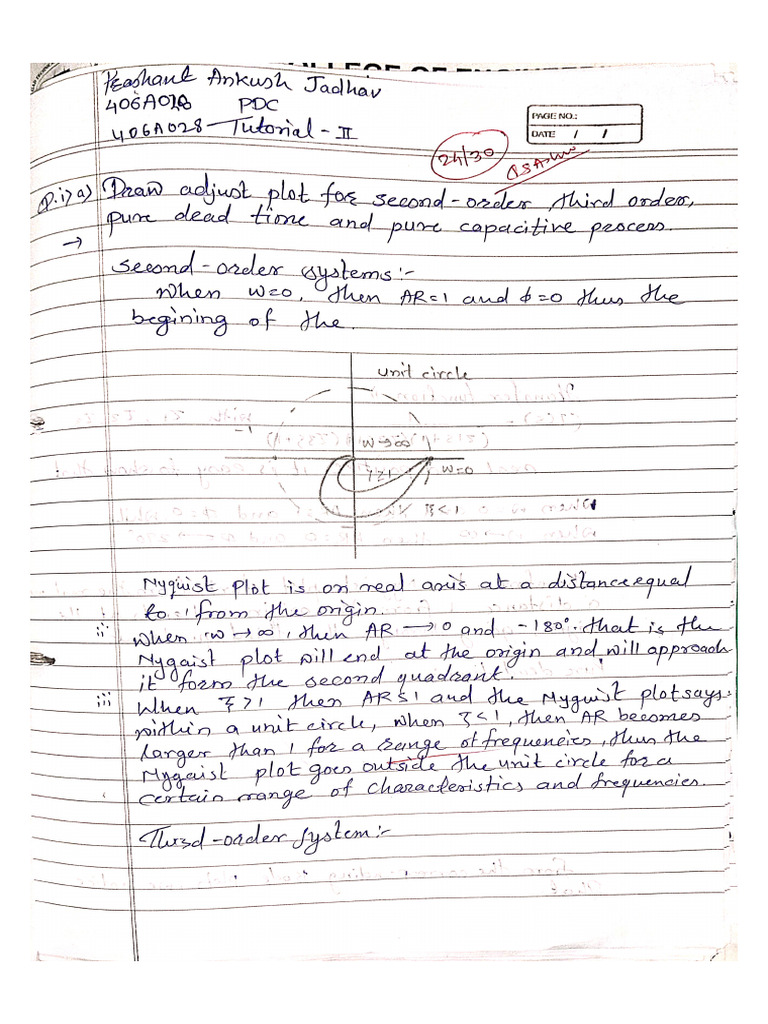 COLLEGE OF ENGINEER
Prashant Ankush Jadhav
406A028 PDC
406A028 - Tutorial - II
PAGE NO.:
DATE / /
24/30
Q.1> a) Draw adjust plot for second-order, third order,
pure dead time and pure capacitive process.
→
Second-order systems:-
When W=0, then AR=1 and ϕ=0 thus the
begining of the.
unit circle
W→∞
W=0
ξ≥1
ξ<1
Nyquist plot is on real axis at a distance equal
to =1 from the origin.
ii When w→∞, then AR→0 and -180°. that is the
Nygaist plot will end at the origin and will approach
it form the second quadrant.
iii When ξ≥1 then AR≤1 and the Nyquist plot says
within a unit circle, when ξ<1, then AR becomes
larger than 1 for a range of frequencies, thus the
Nygaist plot goes outside the unit circle for a
certain range of characteristics and frequencies.
Third-order system:-